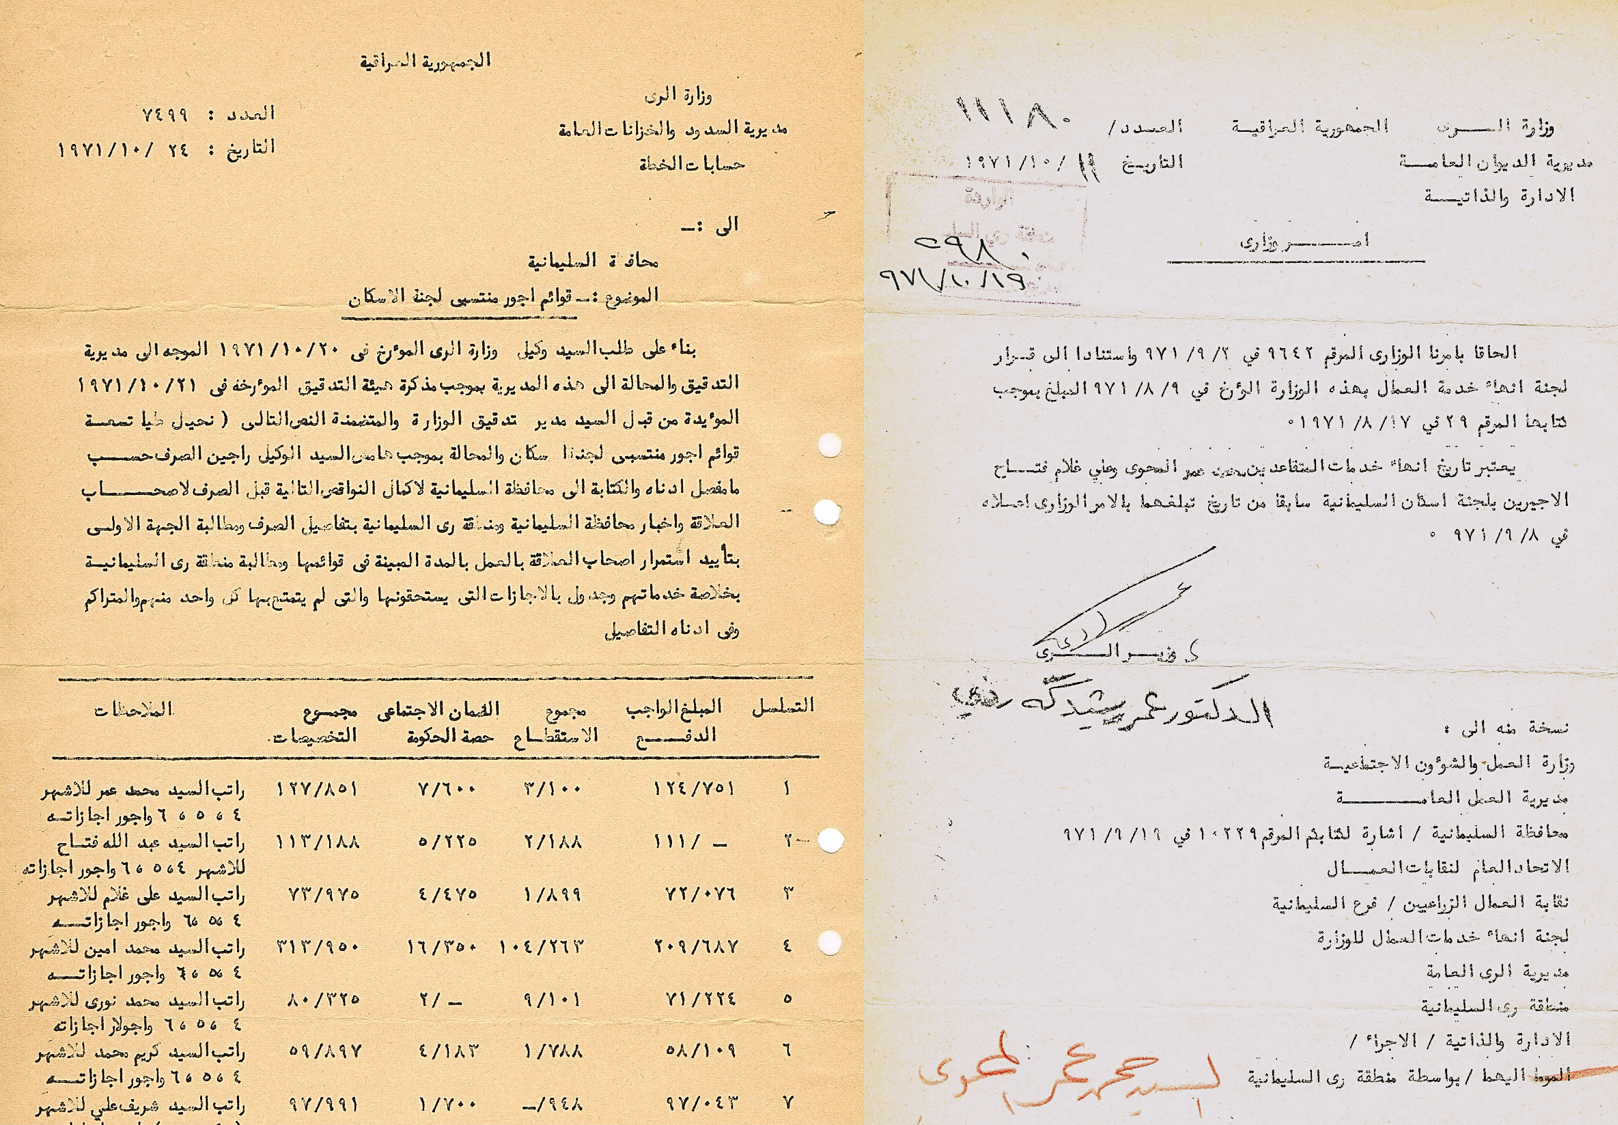 الجمهورية العراقية
وزارة الرى
مديرية السدود والخزانات العامة
حسابات الخطة
العدد : ٧٤٩٩
التاريخ : ٢٤ /١٩٧١/١٠
الى :ــ
محافظة السليمانية
الموضوع :ــ قوائم اجور منتسبى لجنة الاسكان
بناء على طلب السيد وكيل وزارة الرى المؤرخ فى ١٩٧١/١٠/٢٠ الموجه الى مديرية
التدقيق والمحالة الى هذه المديرية بموجب مذكرة هيئة التدقيق المؤرخه فى ١٩٧١/١٠/٢١
المؤيدة من قبل السيد مدير تدقيق الوزارة والمتضمنة النص التالى ( نحيل طيا تسعة
قوائم اجور منتسبى لجنة اسكان والمحالة بموجب هامش السيد الوكيل راجين الصرف حسب
مامفصل ادناه والكتابة الى محافظة السليمانية لاكمال النواقص التالية قبل الصرف لاصحاب
العلاقة واخبار محافظة السليمانية ومنطقة رى السليمانية بتفاصيل الصرف ومطالبة الجهة الاولى
بتأييد استمرار اصحاب العلاقة بالعمل بالمدة المبينة فى قوائمها ومطالبة منطقة رى السليمانية
بخلاصة خدماتهم وجدول بالاجازات التى يستحقونها والتى لم يتمتع بها كل واحد منهم والمتراكم
وفى ادناه التفاصيل
التسلسل المبلغ الواجب الدفع مجموع الاستقطاع الضمان الاجتماعى حصة الحكومة مجموع التخصيصات الملاحظات
١ ١٢٤/٧٥١ ٣/١٠٠ ٧/٦٠٠ ١٢٧/٨٥١ راتب السيد محمد عمر للاشهر
٤ ، ٥ ، ٦ واجور اجازاته
٢ ١١١/ ــ ٢/١٨٨ ٥/٢٢٥ ١١٣/١٨٨ راتب السيد عبد الله فتاح
للاشهر ٤ ، ٥ ، ٦ واجور اجازاته
٣ ٧٢/٠٧٦ ١/٨٩٩ ٤/٤٧٥ ٧٣/٩٧٥ راتب السيد على غلام للاشهر
٤ ، ٥ ، ٦ واجور اجازاته
٤ ٢٠٩/٦٨٧ ١٠٤/٢٦٣ ١٦/٣٥٠ ٣١٣/٩٥٠ راتب السيد محمد امين للاشهر
٤ ، ٥ ، ٦ واجور اجازاته
٥ ٧١/٢٢٤ ٩/١٠١ ٢/ ــ ٨٠/٣٢٥ راتب السيد محمد نورى للاشهر
٤ ، ٥ ، ٦ واجولار اجازاته
٦ ٥٨/١٠٩ ١/٧٨٨ ٤/١٨٣ ٥٩/٨٩٧ راتب السيد كريم محمد للاشهر
٤ ، ٥ ، ٦ واجور اجازاته
٧ ٩٧/٠٤٣ ــ/٩٤٨ ١/٧٠٠ ٩٧/٩٩١ راتب السيد شريف علي للاشهر
وزارة الرى الجمهورية العراقية العدد/ ١١١٨٠
مديرية الديوان العامة التاريخ ١١/ ١٩٧١/١٠
الادارة والذاتية
الواردة
منطقة رى
٢٩٨٠
٩٧١/١٠/١٩
امر وزارى
الحاقا بامرنا الوزارى المرقم ٩٦٤٢ في ٢/ ٩/ ٩٧١ واستنادا الى قرار
لجنة انهاء خدمة العمال بهذه الوزارة المؤرخ في ٩/ ٨/ ٩٧١ المبلغ بموجب
كتابها المرقم ٢٩ في ١٧/ ٨/ ١٩٧١ ٠
يعتبر تاريخ انهاء خدمات المتقاعدين محمد عمر المحوى وعلي غلام فتاح
الاجيرين بلجنة اسكان السليمانية سابقا من تاريخ تبلغهما بالامر الوزارى اعلاه
في ٨/ ٩/ ٩٧١ ٠
وزير الرى
الدكتور عمر رشيد
نسخة منه الى :
وزارة العمل والشؤون الاجتماعية
مديرية العمل العامة
محافظة السليمانية / اشارة لكتابكم المرقم ١٠٢٢٩ في ١٩/ ٩/ ٩٧١
الاتحاد العام لنقابات العمال
نقابة العمال الزراعيين / فرع السليمانية
لجنة انهاء خدمات العمال للوزارة
مديرية الرى العامة
منطقة رى السليمانية
الادارة والذاتية / الاجراء /
اليهما / بواسطة منطقة رى السليمانية
السيد محمد عمر المحوى